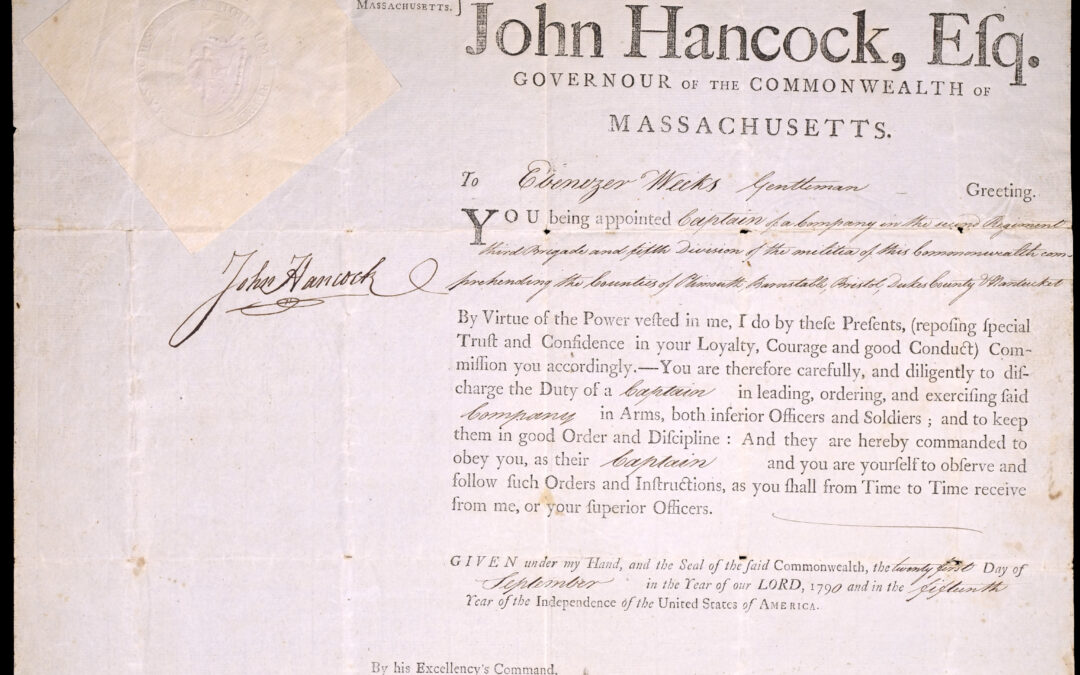 MASSACHUSETTS. }
John Hancock, Eſq.
GOVERNOUR OF THE COMMONWEALTH OF
MASSACHUSETTS.
To Ebenezer Weeks Gentleman Greeting.
YOU being appointed Captain of a Company in the second Regiment
third Brigade and fifth Division of the militia of this Commonwealth com-
prehending the Counties of Plimouth, Barnstable, Bristol, Dukes County & Nantucket
John Hancock
By Virtue of the Power veſted in me, I do by theſe Preſents, (repoſing ſpecial
Truſt and Confidence in your Loyalty, Courage and good Conduct) Com-
miſſion you accordingly.—You are therefore carefully, and diligently to diſ-
charge the Duty of a Captain in leading, ordering, and exerciſing ſaid
Company in Arms, both inferior Officers and Soldiers ; and to keep
them in good Order and Diſcipline : And they are hereby commanded to
obey you, as their Captain and you are yourſelf to obſerve and
follow ſuch Orders and Inſtructions, as you ſhall from Time to Time receive
from me, or your ſuperior Officers.
GIVEN under my Hand, and the Seal of the ſaid Commonwealth, the twenty first Day of
September in the Year of our LORD, 1790 and in the fifteenth
Year of the Independence of the United States of AMERICA.
By his Excellency's Command,